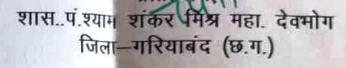 शास..पं.श्याम शंकर मिश्र महा. देवभोग
जिला–गरियाबंद (छ.ग.)